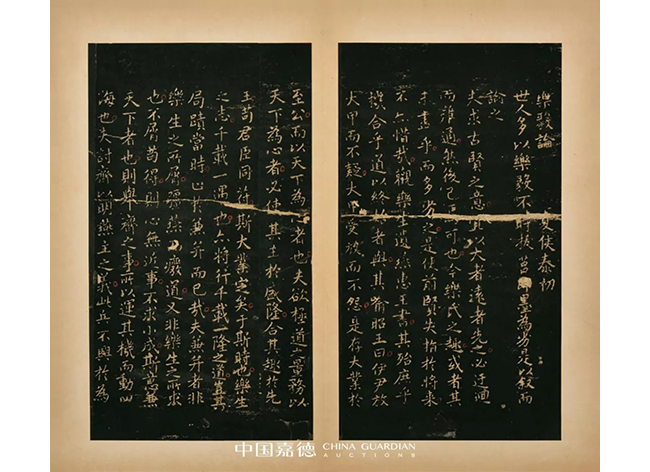 樂毅論 夏侯泰初
世人多以樂毅不時拔莒即墨為劣是以叙而
論之
夫求古賢之意宜以大者遠者先之必迂迴
而難通然後已焉可也今樂氏之趣或者其
未盡乎而多劣之是使前賢失指於將來
不亦惜哉觀樂生遺燕惠王書其殆庶乎
機合乎道以終始者與其喻昭王曰伊尹放
大甲而不疑大甲受放而不怨是存大業於
至公而以天下為心者也夫欲極道之量務以
天下為心者必致其主於盛隆合其趣於先
王苟君臣同符斯大業定矣于斯時也樂生
之志千載一遇也亦將行千載一隆之道豈其
局蹟當時止於兼并而已哉夫兼并者非
樂生之所屑彊燕而癈道又非樂生之所求
也不屑苟得則心無近事不求小成斯意兼
天下者也則舉齊之事所以運其機而動四
海也夫討齊以明燕主之義此兵不興於為
中国嘉德 CHINA GUARDIAN
AUCTIONS